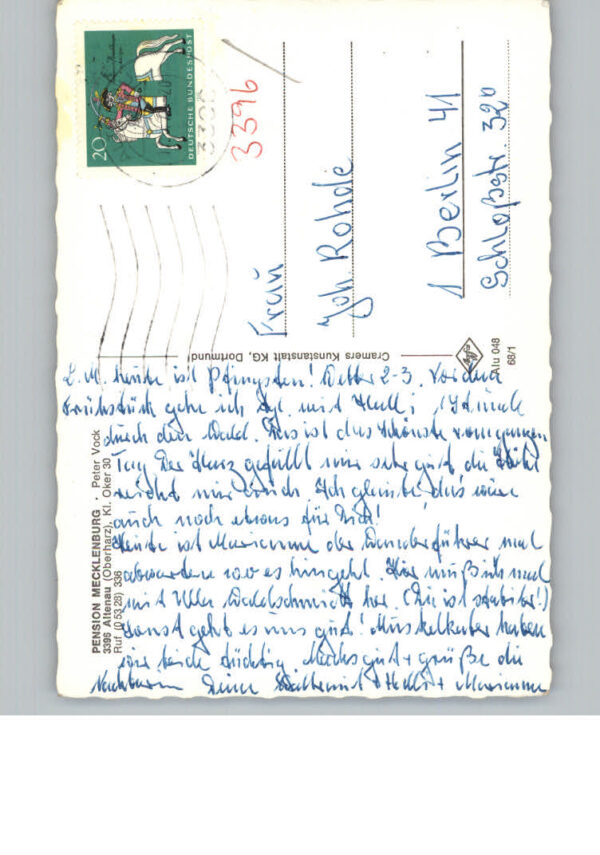 20
DEUTSCHE BUNDESPOST
3396
Frau
Joh. Rohde
1 Berlin 41
Schloßstr. 320
Cramers Kunstanstalt KG, Dortmund
Alu 048
68/1
PENSION MECKLENBURG · Peter Vock
3396 Altenau (Oberharz), Kl. Oker 30
Ruf (0 53 28) 336
L. M. heute ist Pfingsten! Wetter 2-3. Vor dem
Frühstück gehe ich tgl. mit Helli 1 Stunde
durch den Wald. Das ist das Schönste vom ganzen
Tag. Der Harz gefällt mir sehr gut, die Höhe
reicht mir auch. Ich glaube das wäre
auch noch etwas für Dich!
Heute ist Marianne der Wanderführer mal
abwarten wo es hingeht. Hier muß ich mal
mit Ulla Waldschmidt her. (Die ist stabiler!)
Sonst geht es uns gut! Muskelkater haben
wir beide tüchtig. Machs gut + grüße die
Nachbarn Deine Waltraut + Helli + Marianne